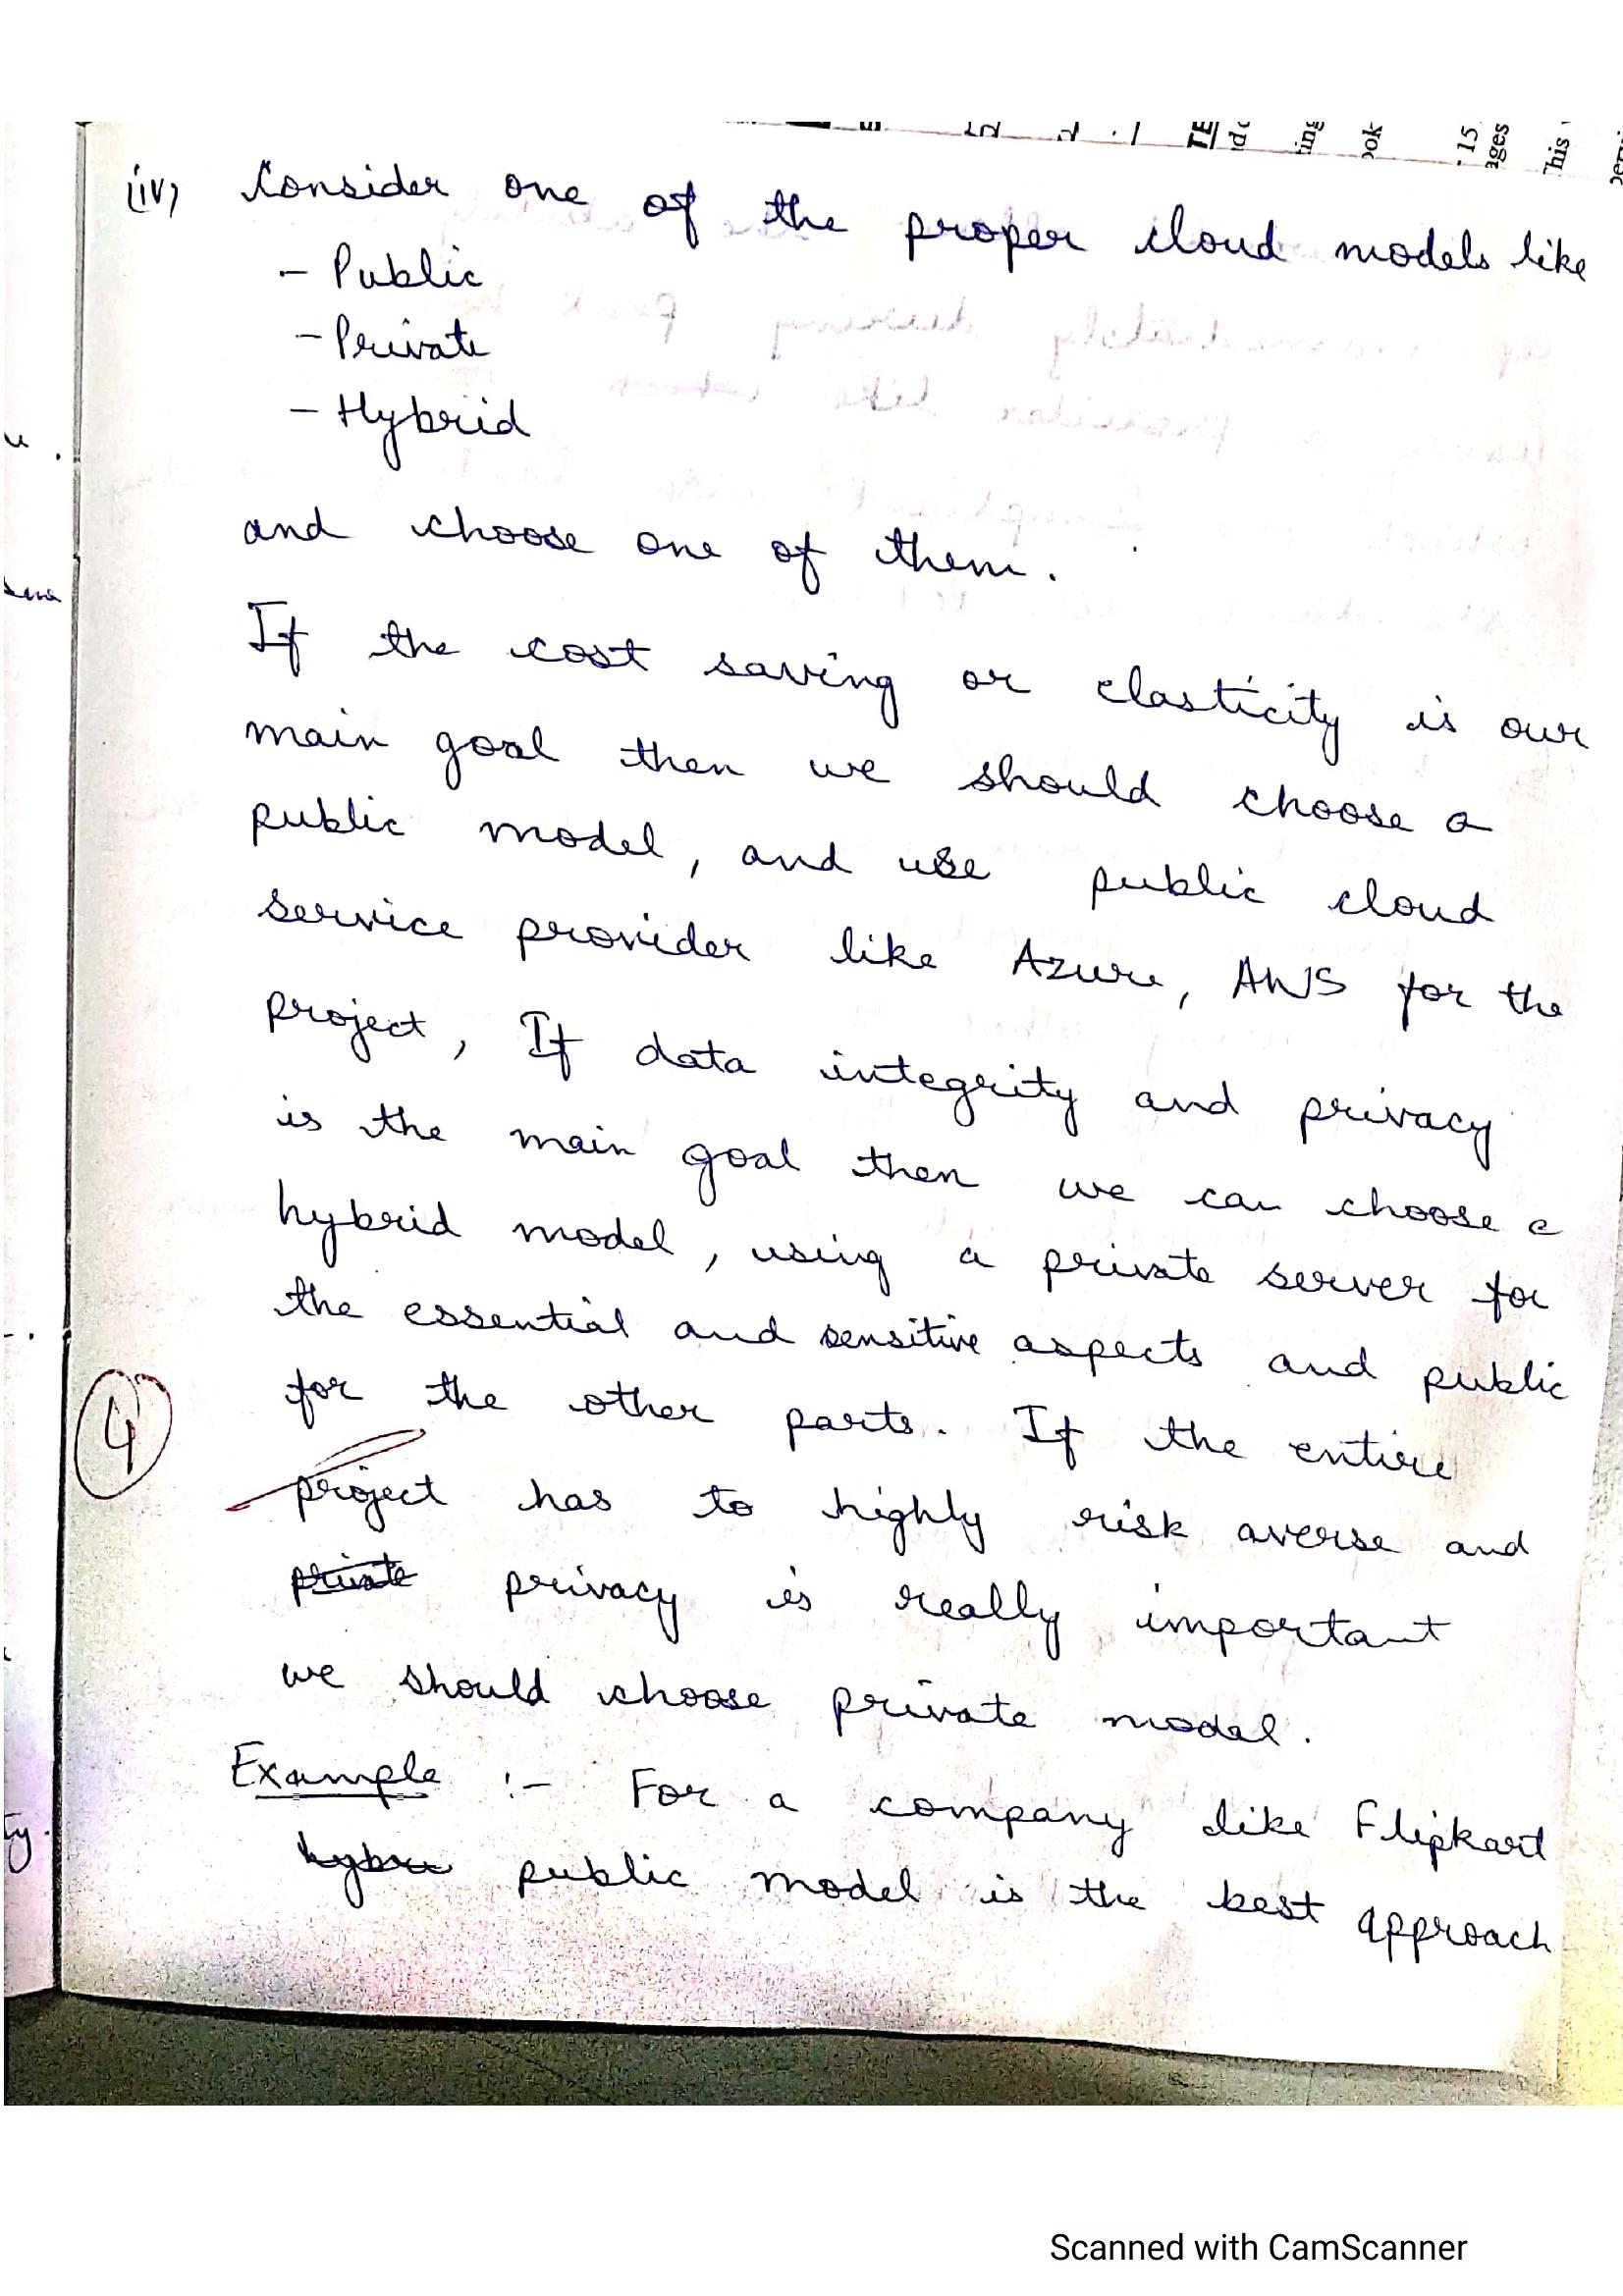 (iv) Consider one of the proper cloud models like
- Public
- Private
- Hybrid
and choose one of them.
If the cost saving or elasticity is our
main goal then we should choose a
public model, and use public cloud
service provider like Azure, AWS for the
project, If data integrity and privacy
is the main goal then we can choose
hybrid model, using a private server for
the essential and sensitive aspects and public
for the other parts. If the entire
4
project has to highly risk averse and
private privacy is really important
we should choose private model.
Example :- For a company like Flipkart
public model is the best approach
TE
ting
ook
15
ages
This
Scanned with CamScanner